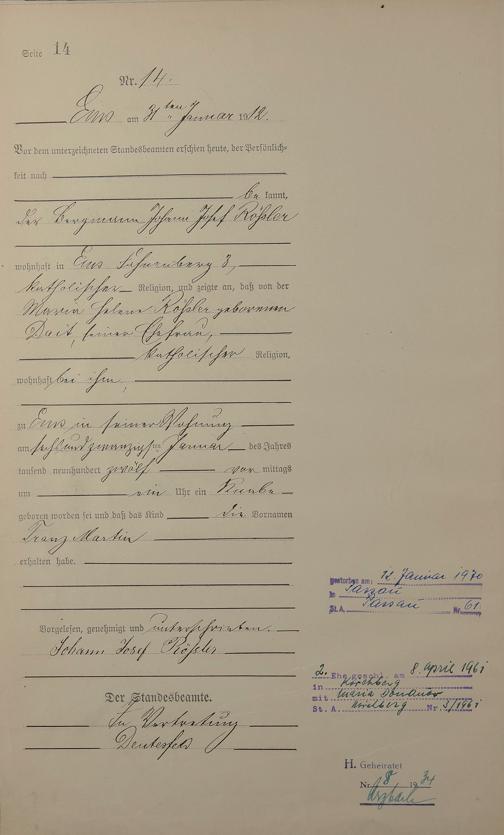 Seite 14
Nr. 14.
Ems am 31ten Januar 1912.
Vor dem unterzeichneten Standesbeamten erschien heute, der Persönlich-
keit nach
bekannt,
der Bergmann Johann Josef Rößler
wohnhaft in Ems 3,
katholischer Religion, und zeigte an, daß von der
Maria Helene Rößler geborenen
seiner Ehefrau,
katholischer Religion,
wohnhaft bei ihm,
zu Ems in seiner Wohnung
am sechsundzwanzigsten Januar des Jahres
tausend neunhundert zwölf vor mittags
um ein Uhr ein Knabe
geboren worden sei und daß das Kind die Vornamen
Franz Martin
erhalten habe.
Vorgelesen, genehmigt und unterschrieben.
Johann Josef Rößler
Der Standesbeamte.
In Vertretung
gestorben am: 12. Januar 1970
in Passau
St.A. Passau Nr. 61.
2. Ehe geschl. am 8. April 1961
in Kirchberg
mit Maria
St. A. Nr. 3/1961
H. Geheiratet
Nr. 8 1934
Arzbach